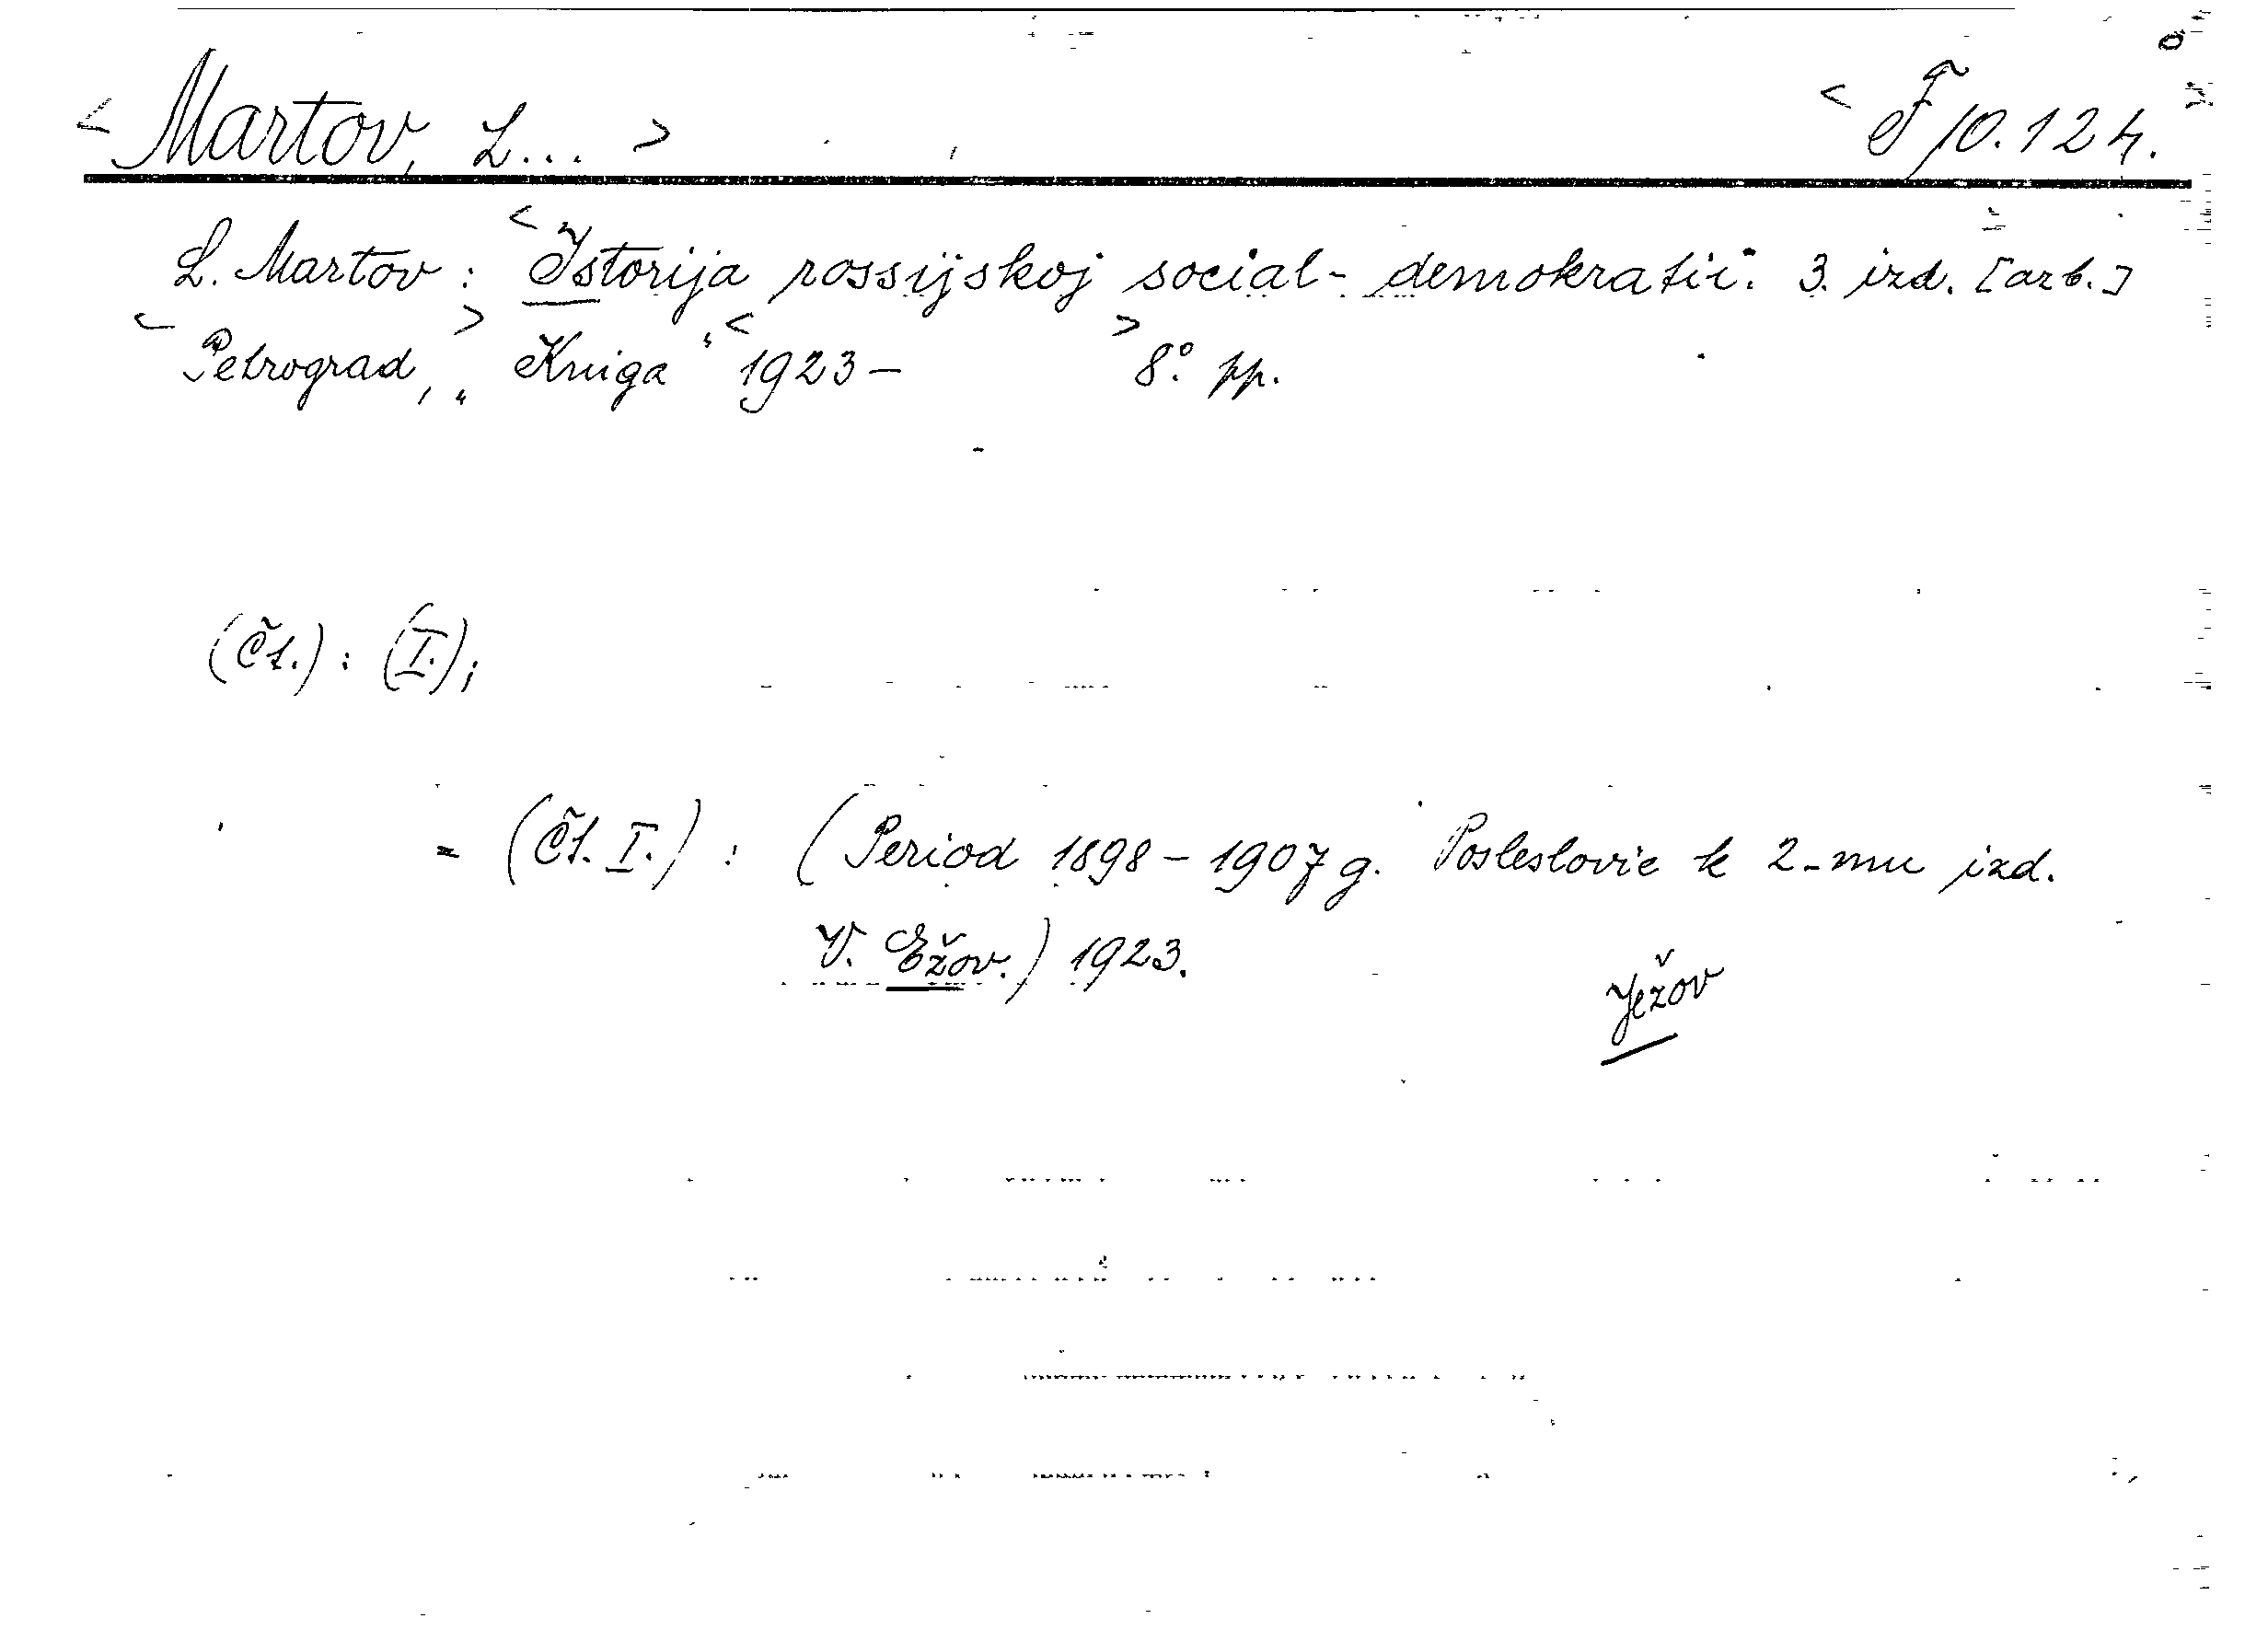 < Martov, L... > < F 10.124. >
L. Martov: < Istorija rossijskoj social-demokratii. 3. izd. [azb.]
< Petrograd, > „Kniga“ < 1923- > 8° pp.
(Čt.): (I.);
= (Čt. I.): (Period 1898-1907 g. Posleslovie k 2-mu izd.
V. Ežov.) 1923.
Ježov